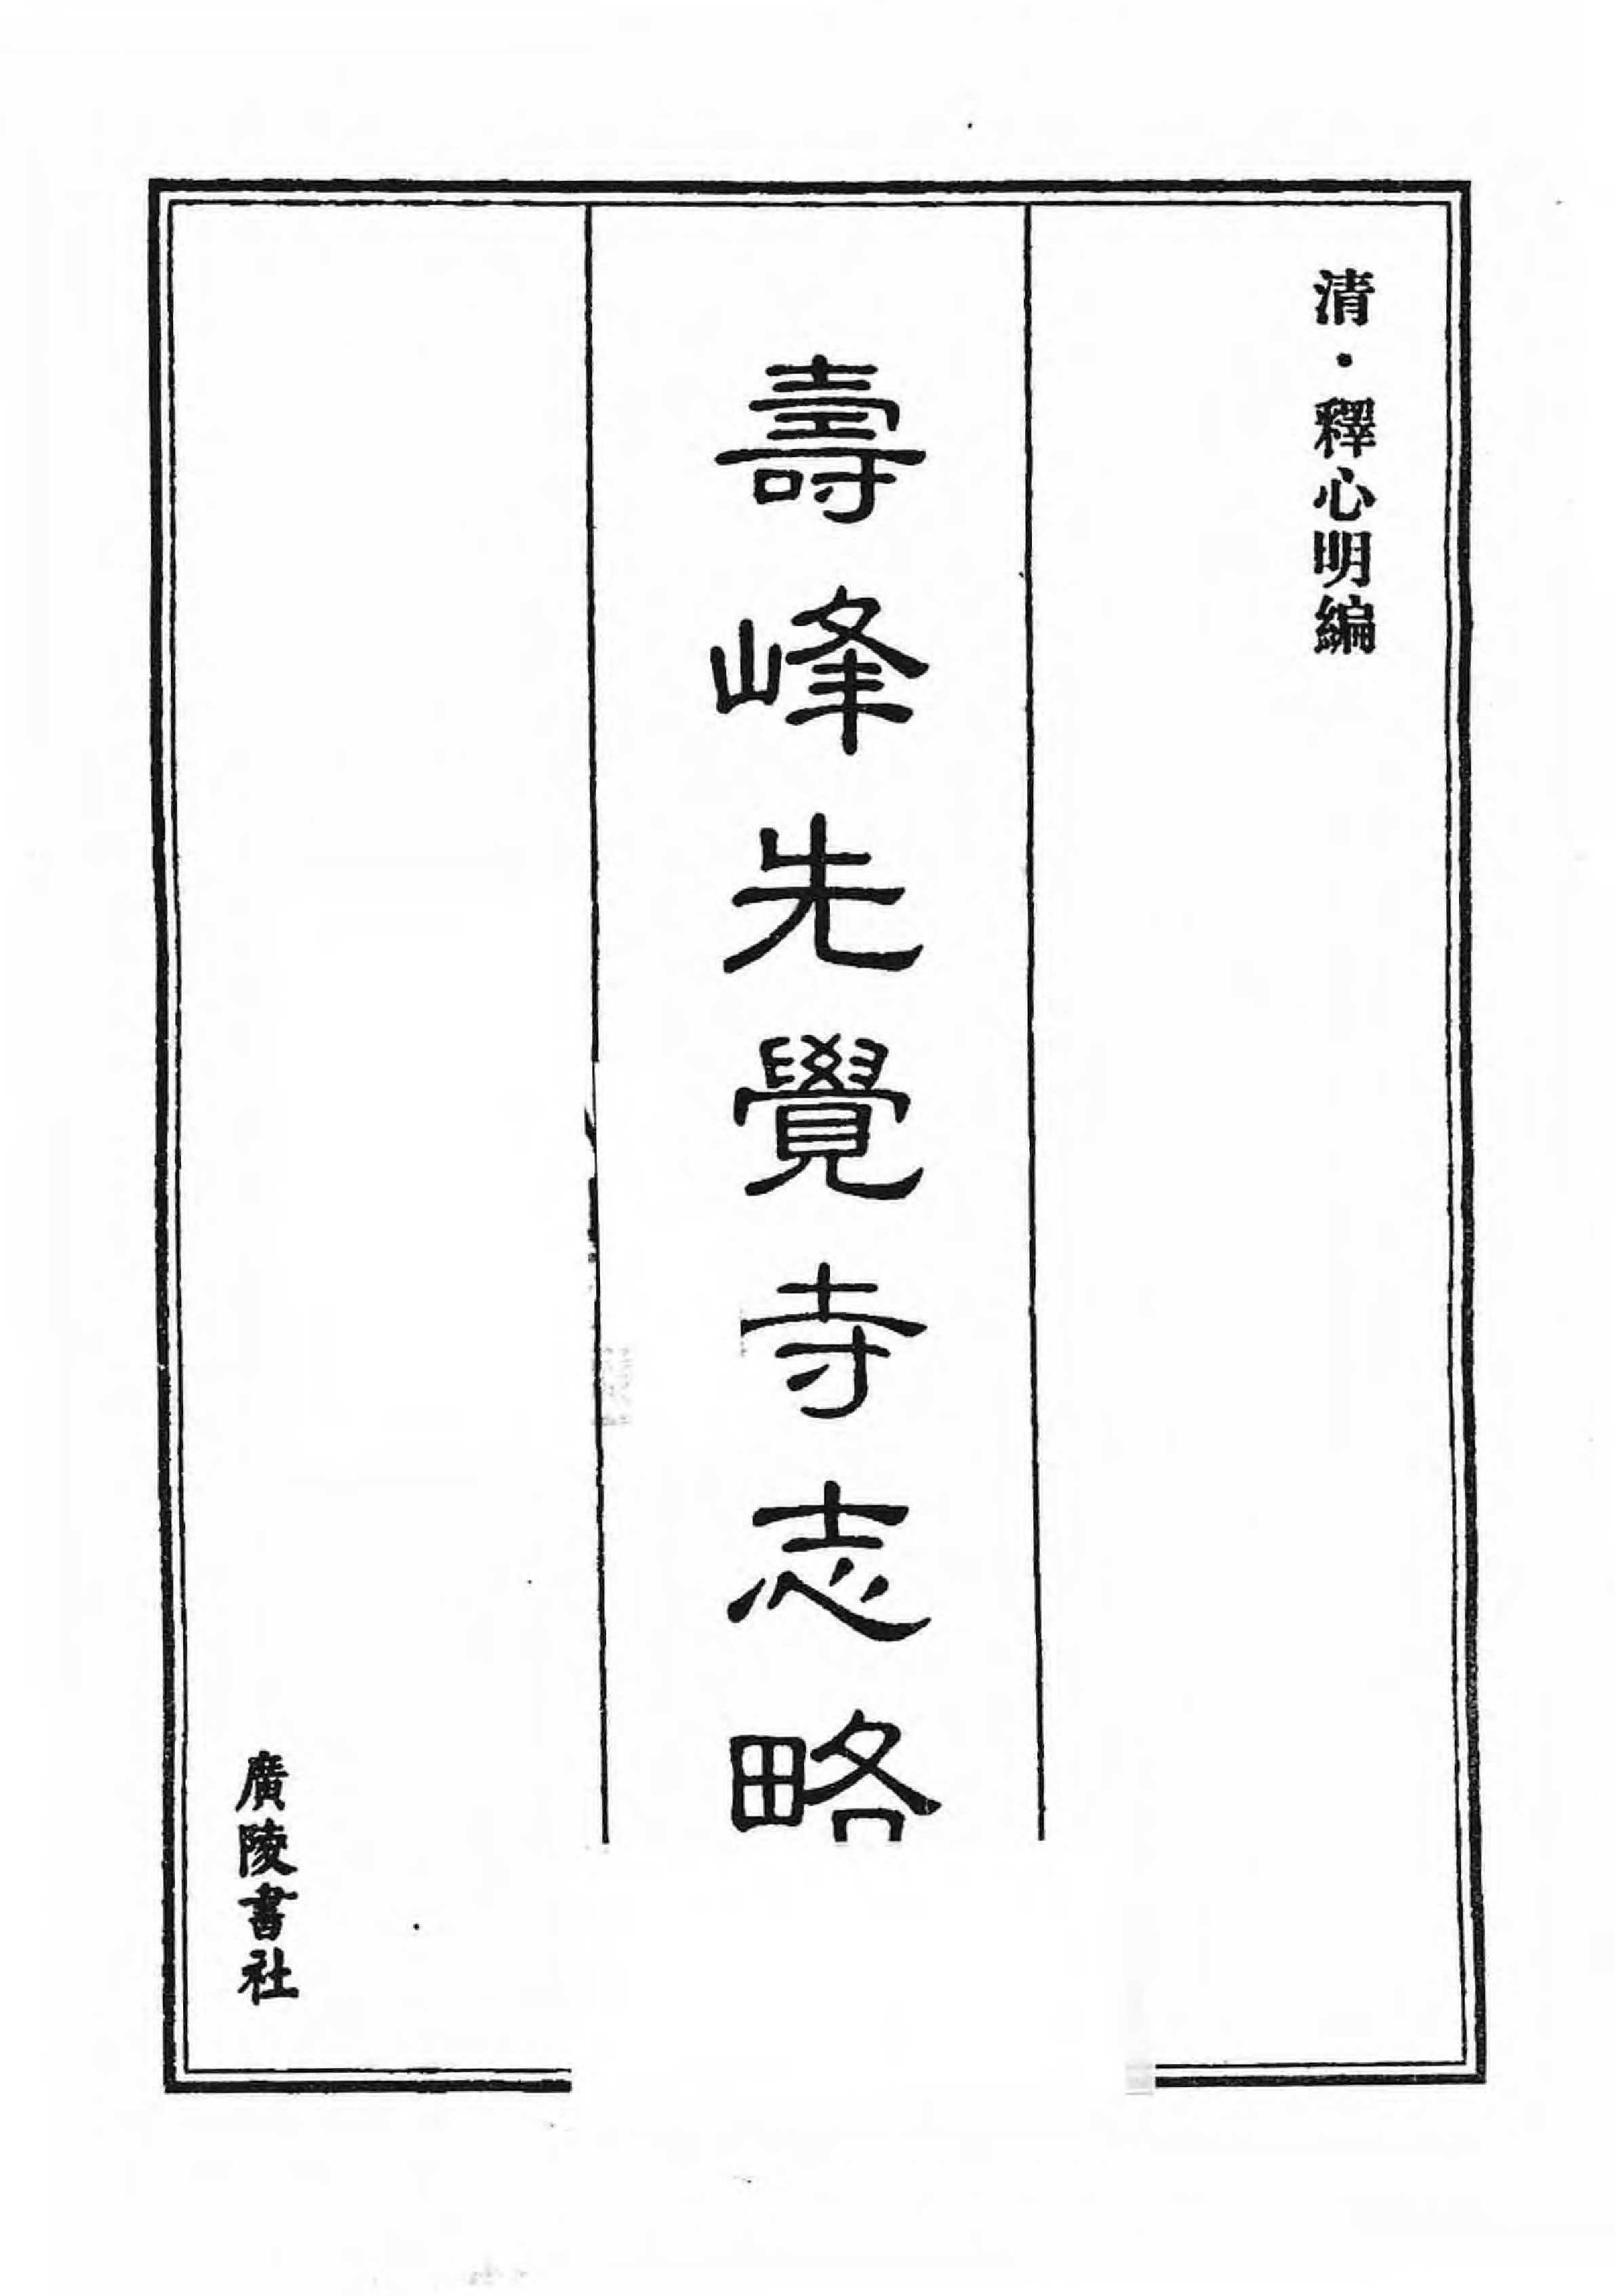 清·釋心明編
壽峰先覺寺志略
廣陵書社